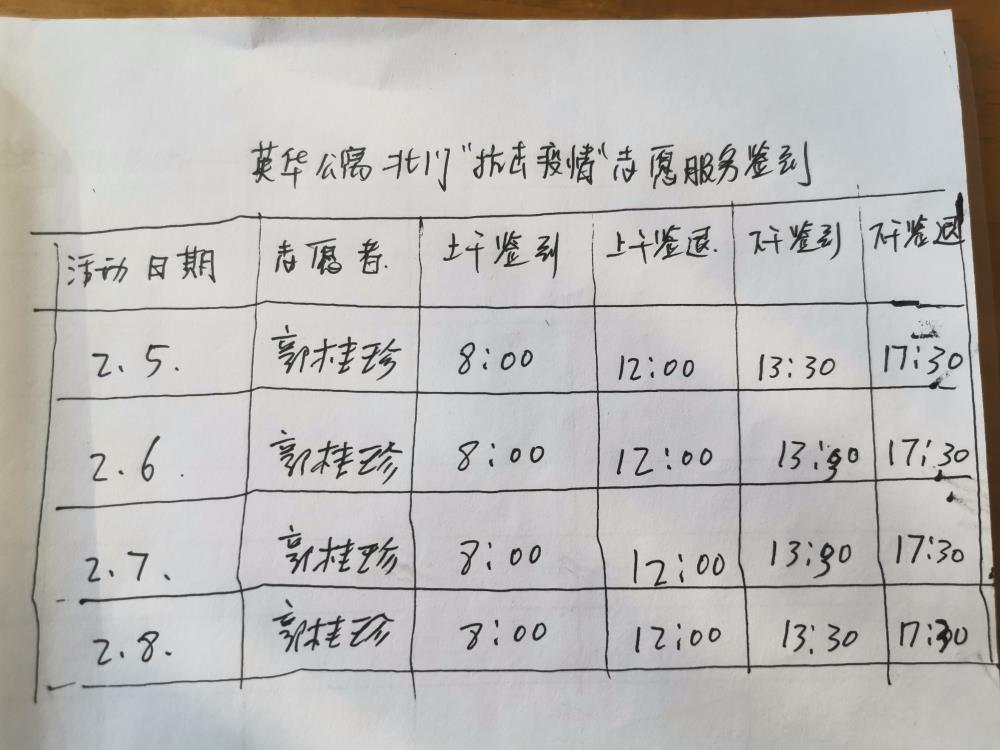 英华公寓北门"抗击疫情"志愿服务签到
活动日期 志愿者 上午签到 上午签退 下午签到 下午签退
2.5. 郭桂珍 8:00 12:00 13:30 17:30
2.6. 郭桂珍 8:00 12:00 13:30 17:30
2.7. 郭桂珍 8:00 12:00 13:30 17:30
2.8. 郭桂珍 8:00 12:00 13:30 17:30